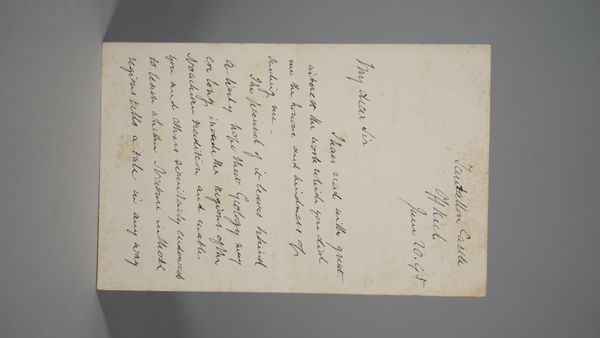 Tantallon Castle
June 20. 95
My dear Sir
I have read with great
interest the work which you did
me the honour and kindness of
sending me -
The perusal of it leaves behind
a lively hope that Geology may
ere long invade the regions of the
Noachian tradition and enable
you and others similarly endowed
to learn whether Nature in those
regions tells a tale in any way